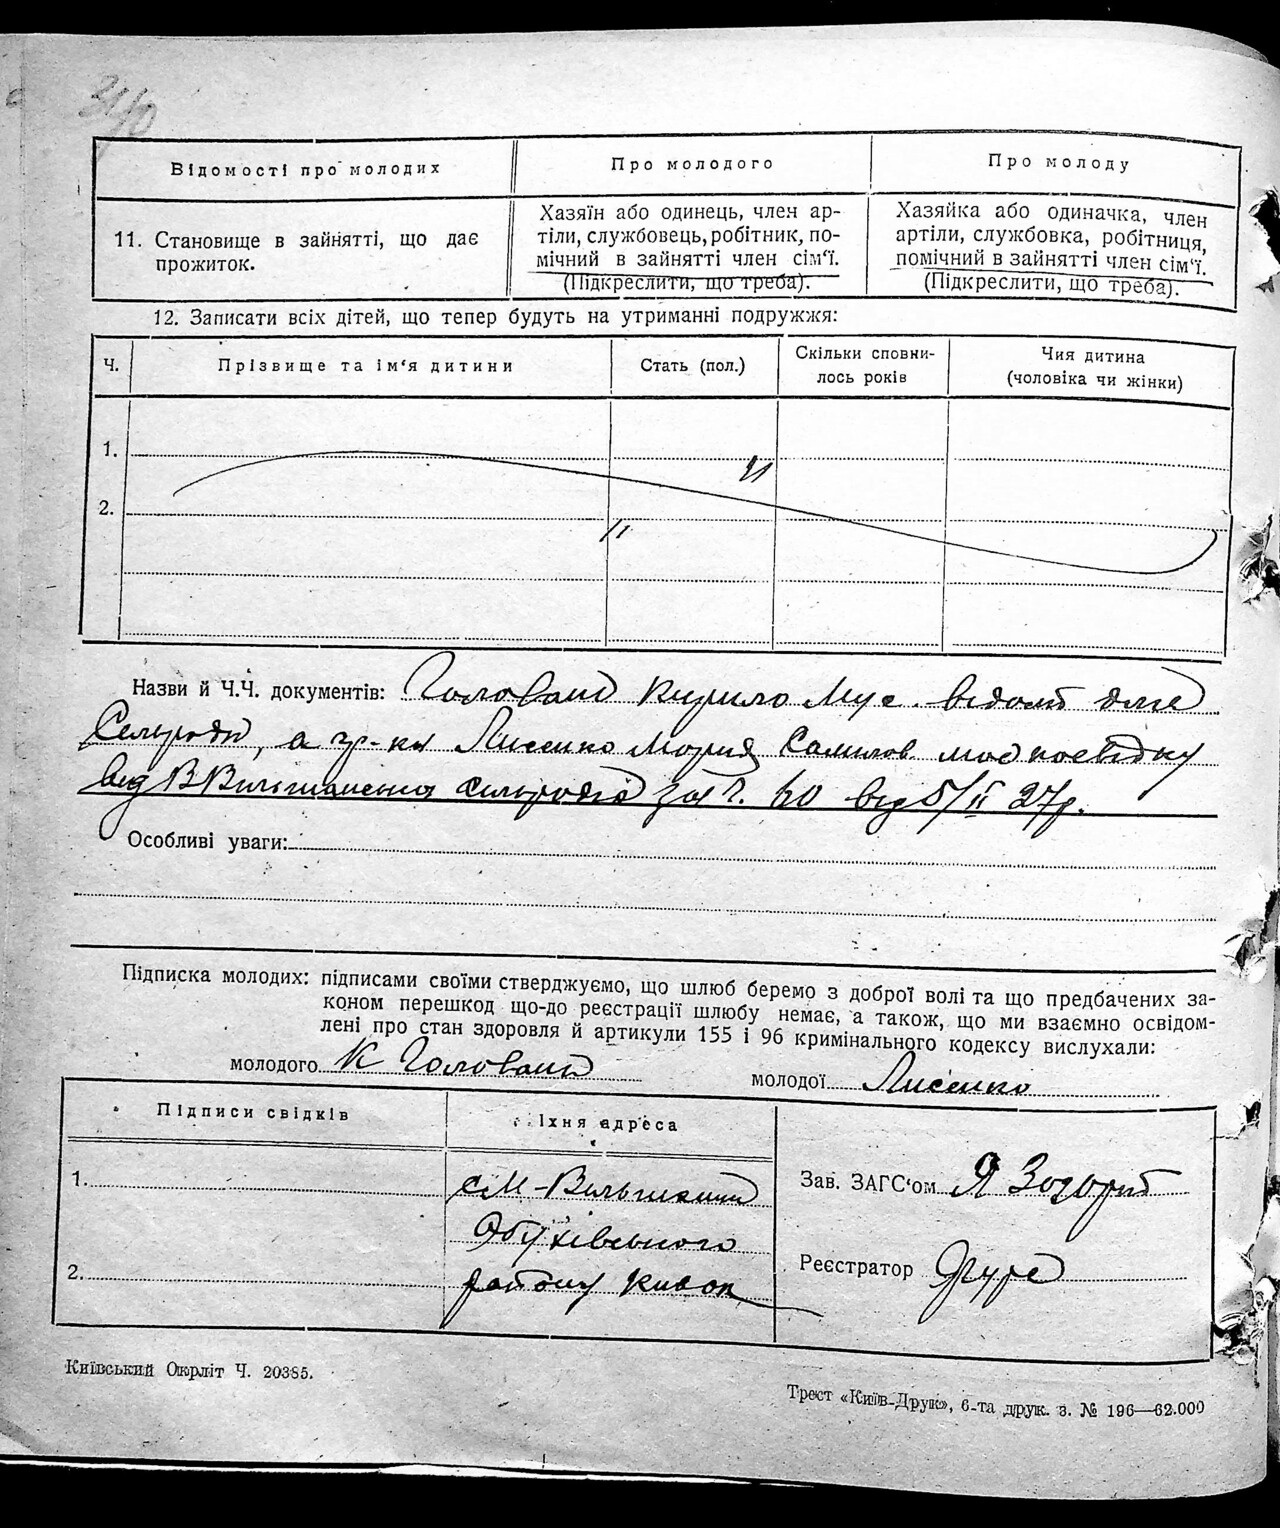 Відомості про молодих
Про молодого
Про молоду
11. Становище в зайнятті, що дає
прожиток.
Хазяїн або одинець, член ар-
тіли, службовець, робітник, по-
мічний в зайнятті член сім'ї.
(Підкреслити, що треба).
Хазяйка або одиначка, член
артіли, службовка, робітниця,
помічний в зайнятті член сім'ї.
(Підкреслити, що треба).
12. Записати всіх дітей, що тепер будуть на утриманні подружжя:
Ч.
Прізвище та ім'я дитини
Стать (пол.)
Скільки сповни-
лось років
Чия дитина
(чоловіка чи жінки)
1.
2.
Назви й Ч.Ч. документів: Головань Кирило Мус. відомий для
Сельради, а гр-ка Лисенко Мария Самилов. має посвідку
від В Вильшанська сельради за Ч. 60 від 5/II 27р.
Особливі уваги:
Підписка молодих: підписами своїми стверджуємо, що шлюб беремо з доброї волі та що предбачених за-
коном перешкод що-до реєстрації шлюбу немає, а також, що ми взаємно освідом-
лені про стан здоровля й артикули 155 і 96 кримінального кодексу вислухали:
молодого К Головань
молодої Лисенко
Підписи свідків
Їхня адреса
1.
с М-Вильшанка
Обухівського
2.
району Кивок
Зав. ЗАГС'ом
Реєстратор
Київський Окрліт Ч. 20385.
Трест «Київ-Друк», 6-та друк. з. № 196—62.000